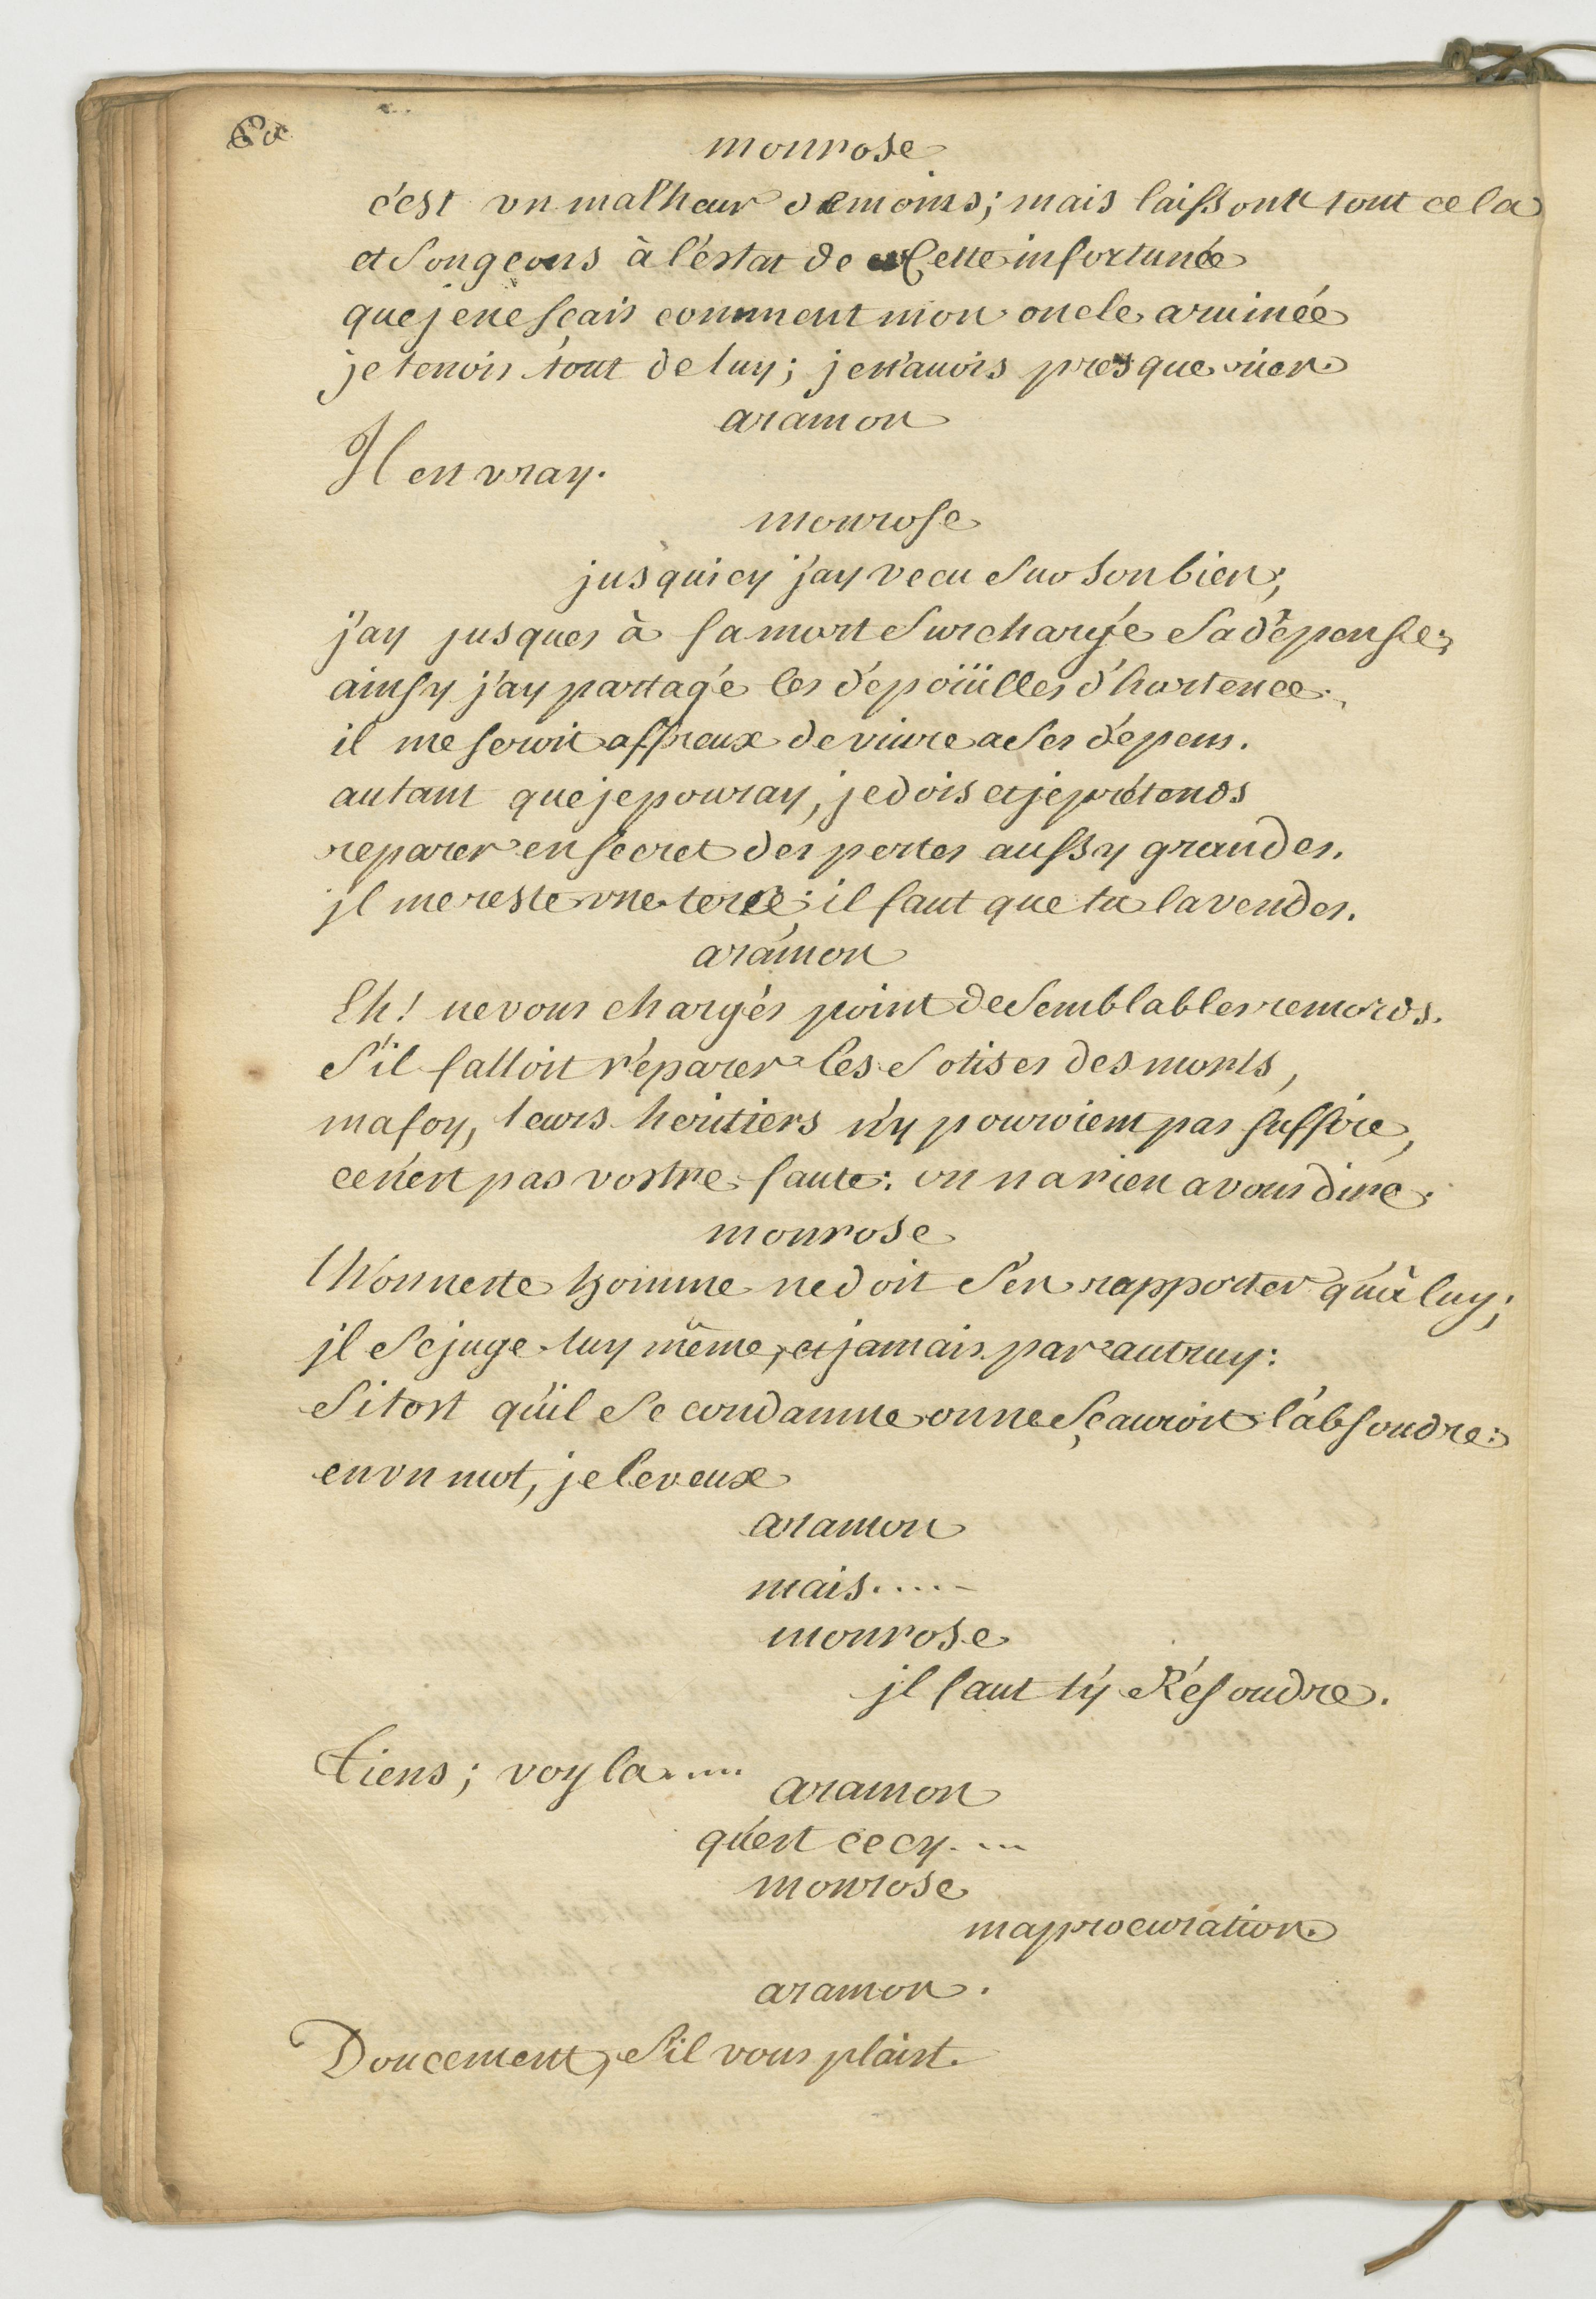 monrose
c'est vn malheur de moins; mais laissont tout cela
et Songeons à l'éstat de Cette infortunée
que je ne sçais comment mon oncle a ruinée
je tenois tout de luy; je n'auois presque rien
aramon
Il est vray.
monrose
jusqu'icy j'ay vecu Sur Son bien;
j'ay jusques à sa mort Surchargé Sa dépense;
ainsy j'ay partagé les dépoüilles d'hortence.
il me seroit affreux de viure a Ses dépens.
autant que je pouray, je dois et je prétends
reparer en secret des pertes aussy grandes.
jl me reste vne terre; il faut que tu la vendes.
aramon
Eh! ne vous chargés point de Semblables remords.
S'il falloit réparer les Sotises des morts,
ma foy, leurs heritiers n'y pouroient pas suffire,
ce n'est pas vostre faute: on n'a rien a vous dire.
monrose
l'honneste homme ne doit S'en rapporter qu'à luy;
jl Se juge luy même, et jamais par autruy:
Sitost qu'il Se condamne on ne Sçauroit l'absoudre:
en vn mot, je le veux
aramon
mais.....
monrose
jl faut t'y Résoudre.
Tiens; voyla.....
aramon
qu'est cecy....
monrose
ma procuration.
aramon.
Doucement, S'il vous plaist.